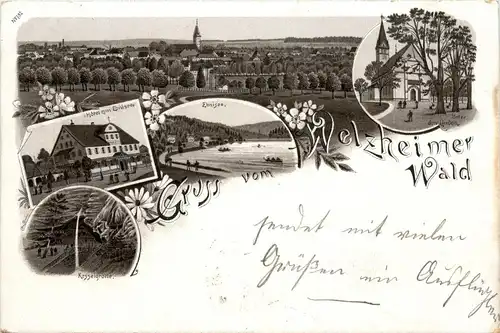 Ebnisee.
Gruss vom
Welzheimer
Wald
Kesselgrotte.
sendet mit vielen
Grüßen ein Ausflügler